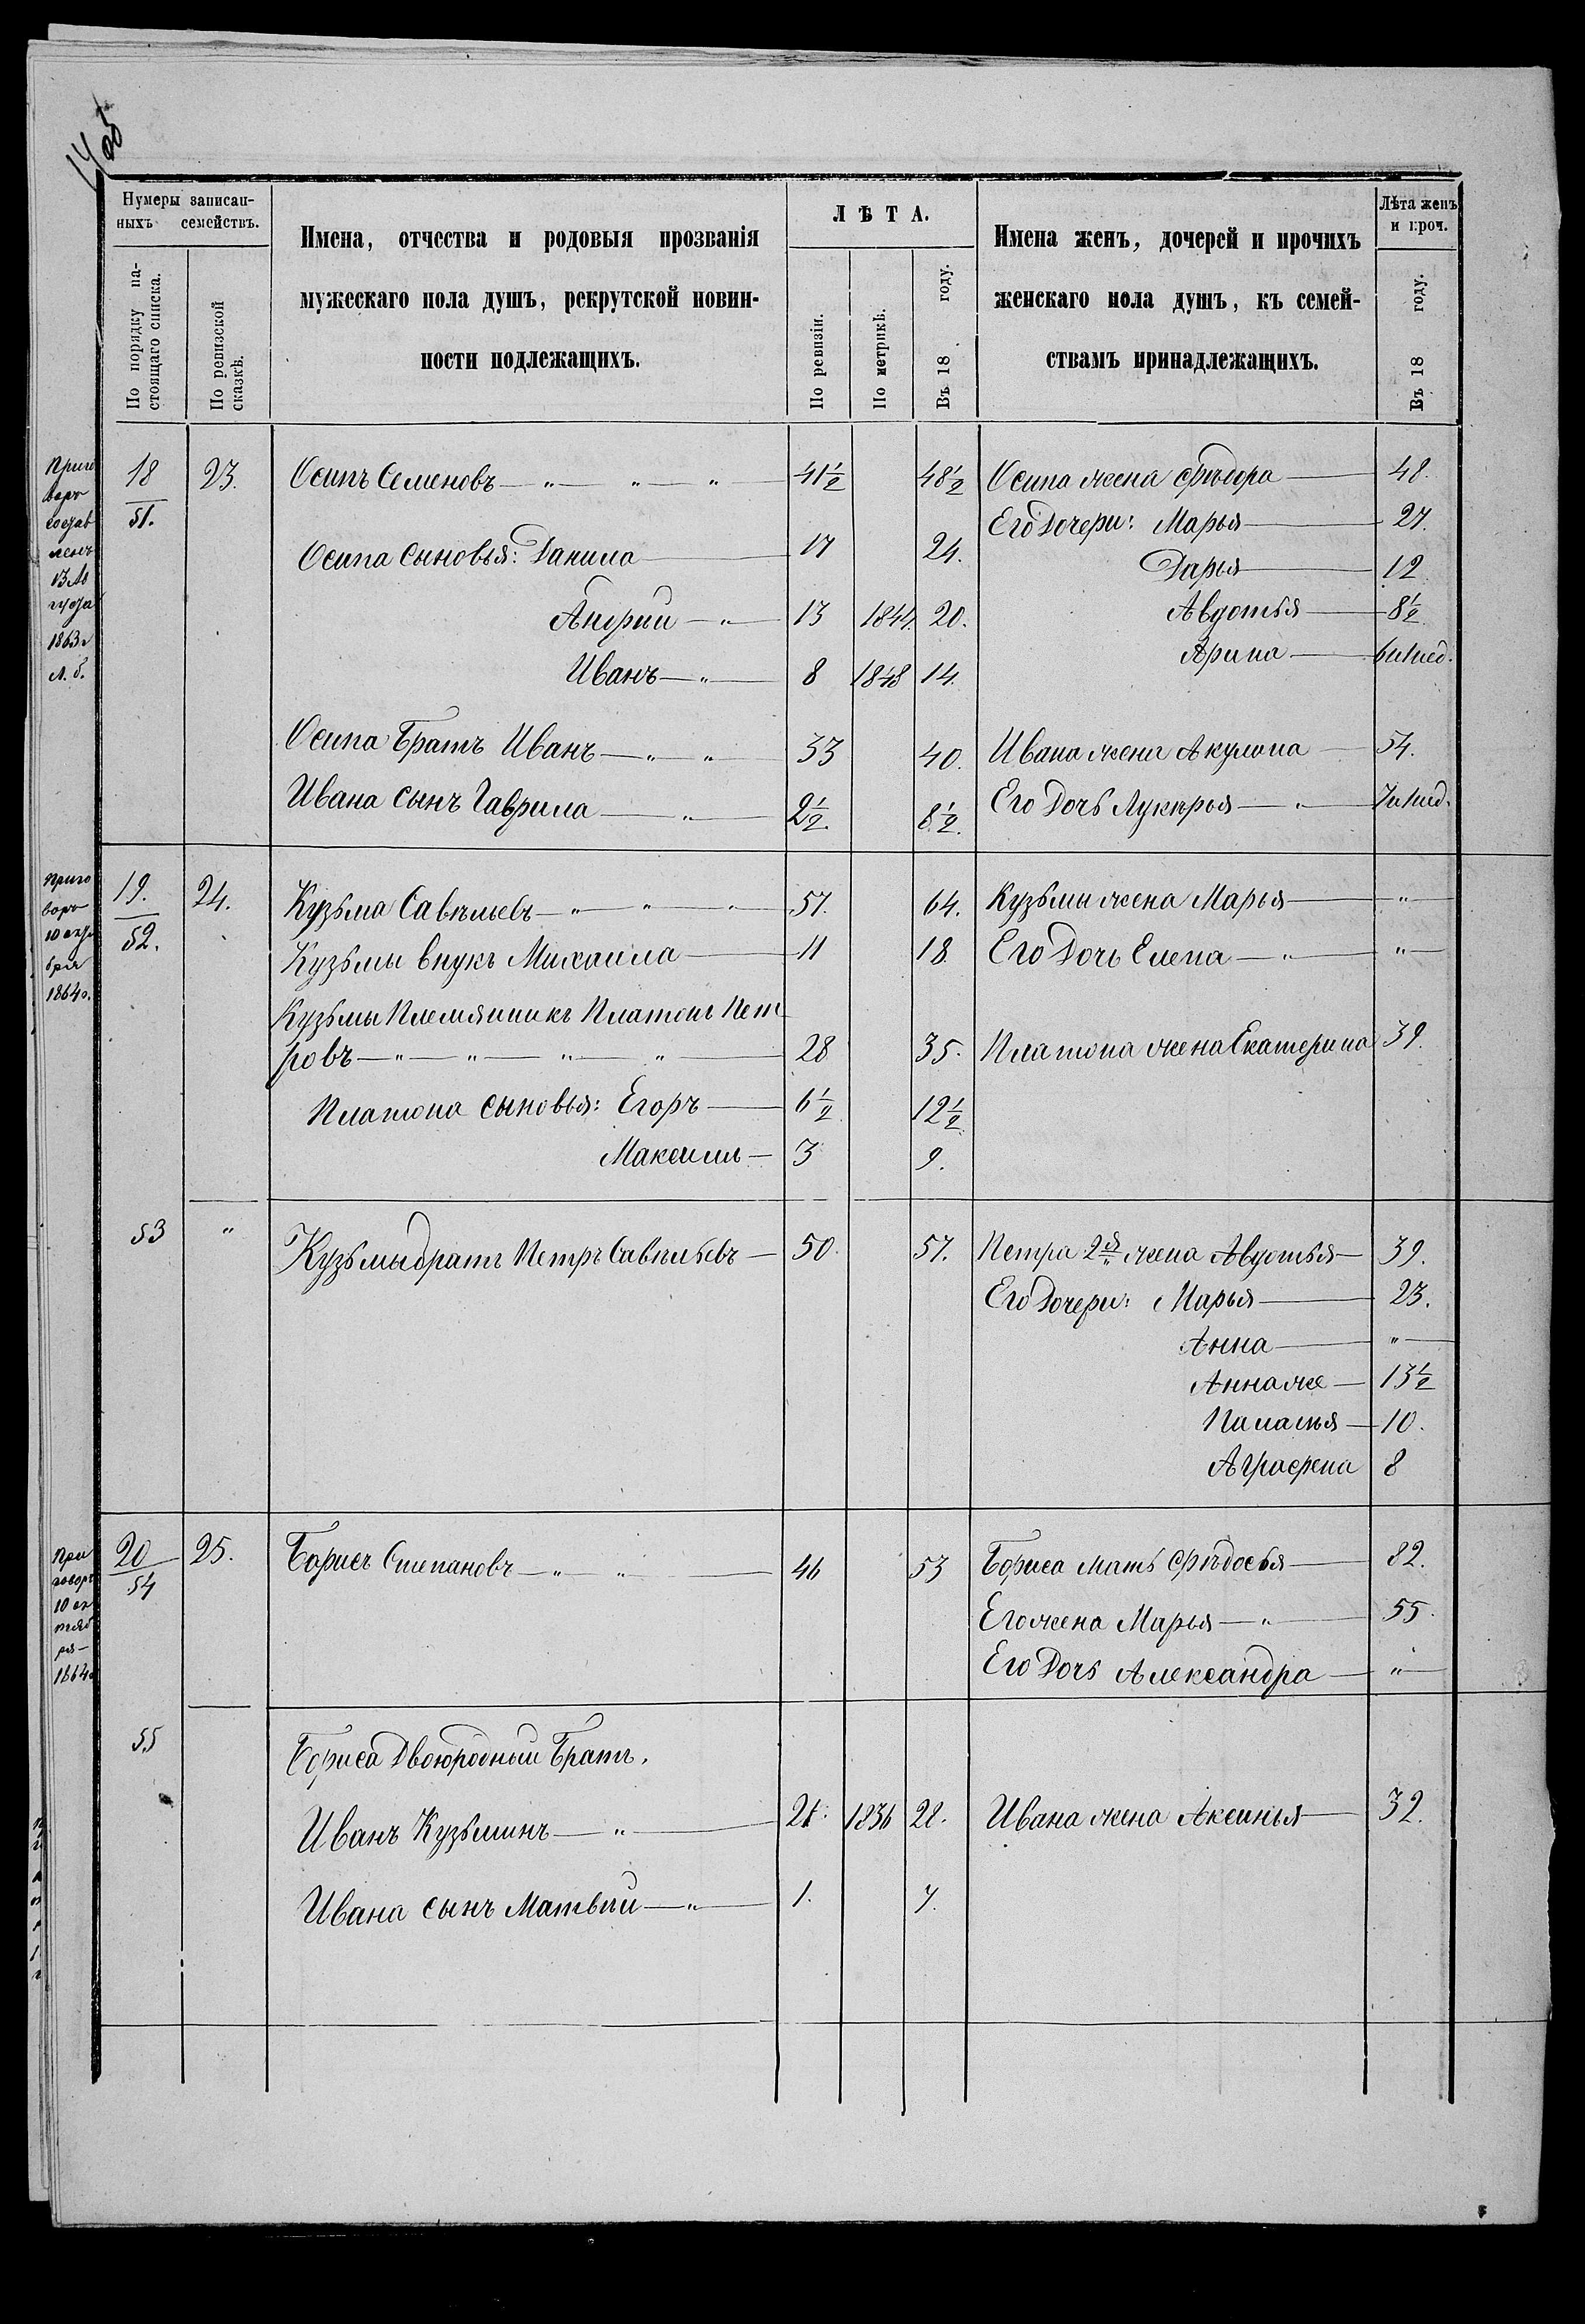 Нумеры записан-
ныхъ семействъ.
По порядку на-
стоящаго списка.
По ревизской
сказкѣ.
Имена, отчества и родовыя прозванія
мужескаго пола душъ, рекрутской повин-
ности подлежащихъ.
ЛѢТА.
По ревизіи.
По метрикѣ.
Въ 18 году.
Имена женъ, дочерей и прочихъ
женскаго пола душъ, къ семей-
ствамъ принадлежащихъ.
Лѣта женъ
и проч.
Въ 18 году.
Приго
воръ
состав
ленъ
13 Ав
густа
1863 г
18 23. Осипъ Семеновъ — „ — „ — „ 41½ 48½ Осипа жена Ѳѣдора — 48.
51.
Его Дочери: Марья — 27.
Осипа сыновья: Данила — 17 24. Дарья — 12
Андрѣй — „ — 13 1844. 20. Авдотья — 8½
Иванъ — „ — 8 1848 14. Арина — 6 инед.
Осипа Братъ Иванъ — „ — „ — 33 40. Ивана жена Акулина — 54.
Ивана сынъ Гаврила — „ — 2½ 8½. Его Дочь Лукѣрья — „ —
Приго
воръ
10 октя
бря
1864 г.
19. 24. Кузьма Савѣльевъ — „ — „ — „ 57. 64. Кузьмы жена Марья — „ —
52. Кузьмы внукъ Михаила — 11 18. Его Дочь Елена — „ — „ —
Кузьмы Племянникъ Платонъ Пет
ровъ — „ — „ — „ — „ — 28 35. Платона жена Екатерина 39.
Платона сыновья: Егоръ — 6½ 12½
Максимъ — 3 9.
53 „ Кузьмы братъ Петръ Савѣльевъ — 50. 57. Петра 2я жена Авдотья — 39.
Его Дочери: Марья — 23.
Анна — „ —
Анна же — 13½
Палагья — 10.
Аграфена 8
При
говоръ
10 ок
тяб
ря —
1864 г
20 25. Борисъ Степановъ — „ — „ — 46 53 Бориса мать Ѳѣдосья — 82.
54
Его жена Марья — „ — 55.
Его Дочь Александра — „ —
55 Бориса Двоюродный Братъ,
Иванъ Кузьминъ — „ — 21. 1836 28. Ивана жена Аксинья — 32.
Ивана сынъ Матвѣй — „ — 1. 7.